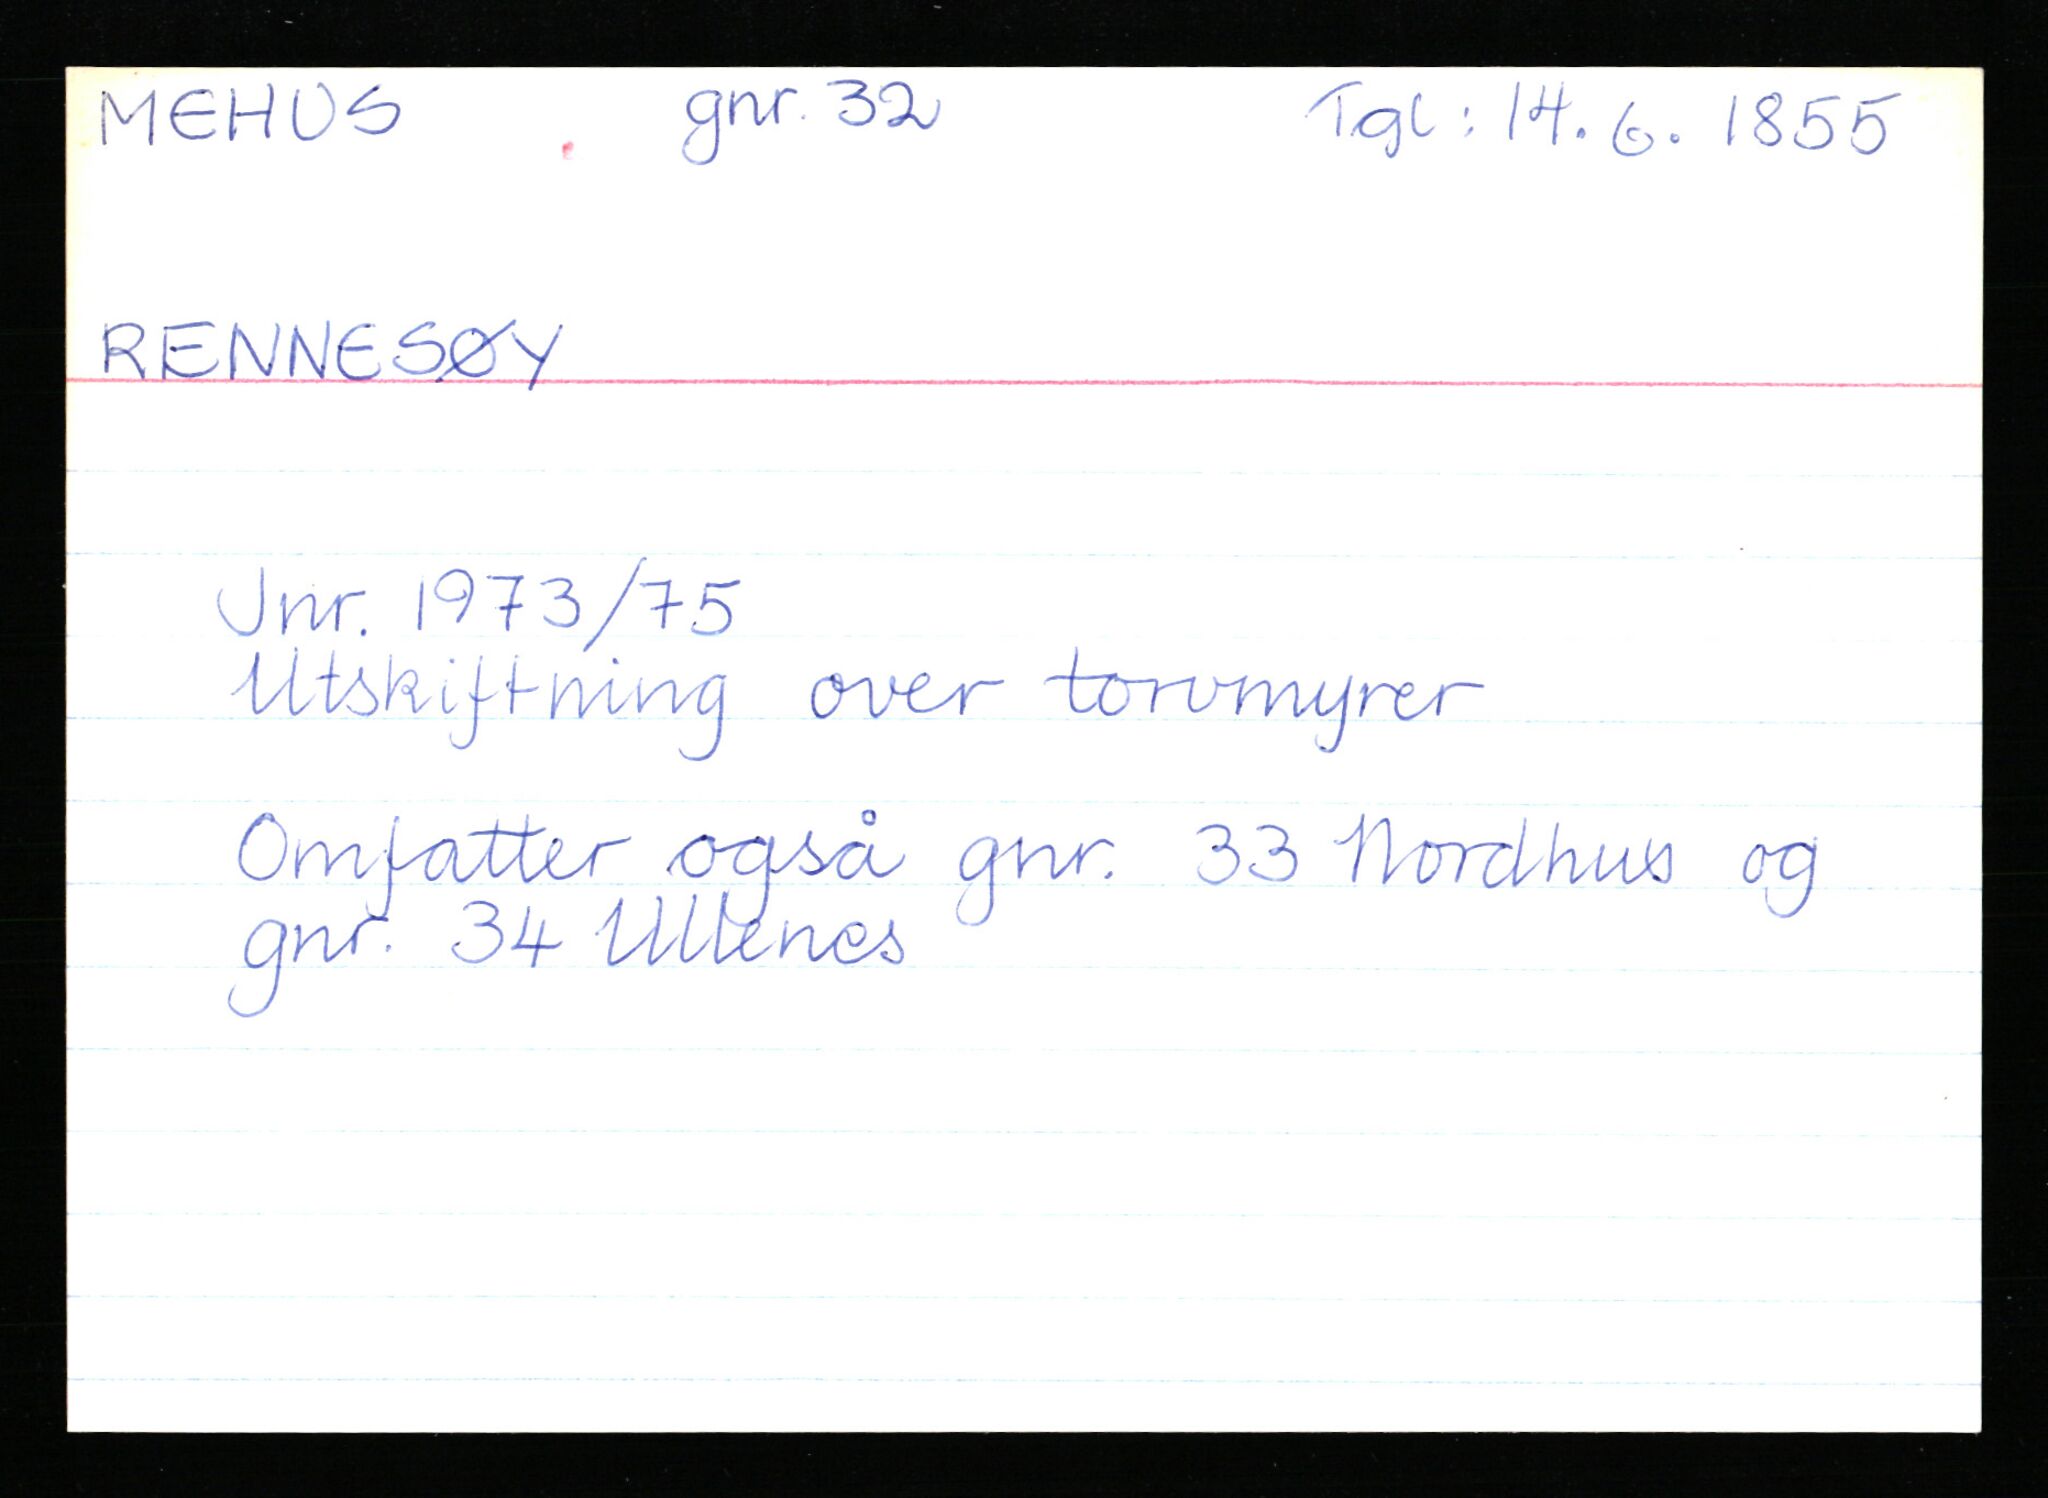 MEHUS gnr. 32 Tgl: 14. 6. 1855
RENNESØY
Jnr. 1973/75
Utskiftning over torvmyrer
Omfatter også gnr. 33 Nordhus og
gnr. 34 Ullenes